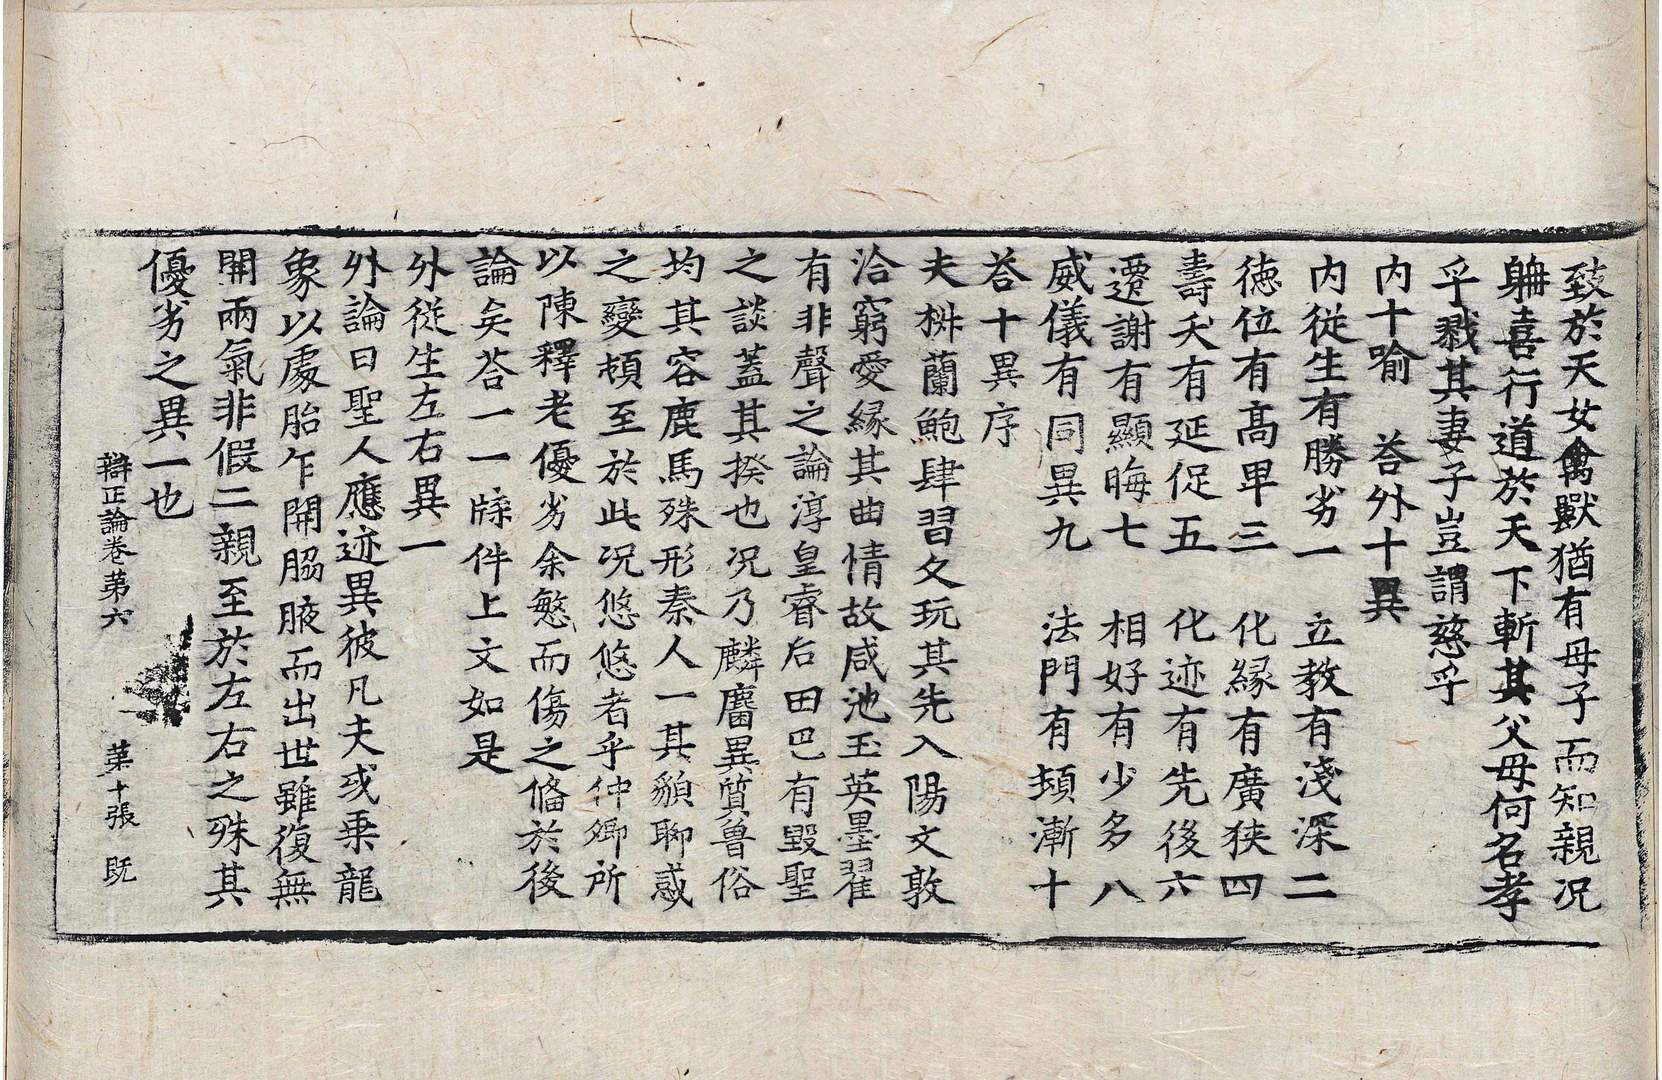 致於天女禽獸猶有母子而知親況
躬喜行道於天下斬其父母何名孝
乎戮其妻子豈謂慈乎
内十喻　荅外十異
内從生有勝劣一　立教有淺深二
徳位有高卑三　化縁有廣狹四
壽夭有延促五　化迹有先後六
遷謝有顯晦七　相好有少多八
威儀有同異九　法門有頓漸十
荅十異序
夫栟蘭鮑肆習久玩其先入陽文敦
洽窮愛縁其曲情故咸池玉英墨翟
有非聲之論淳皇睿后田巴有毀聖
之談蓋其揆也况乃麟麏異質魯俗
均其容鹿馬殊形秦人一其貌聊惑
之變頓至於此况悠悠者乎仲卿所
以陳釋老優劣余慜而傷之俻於後
論矣荅一一牒件上文如是
外從生左右異一
外論曰聖人應迹異彼凡夫或乗龍
象以處胎乍開脇腋而出世雖復無
開兩氣非假二親至於左右之殊其
優劣之異一也
辯正論卷第六　苐十張　既